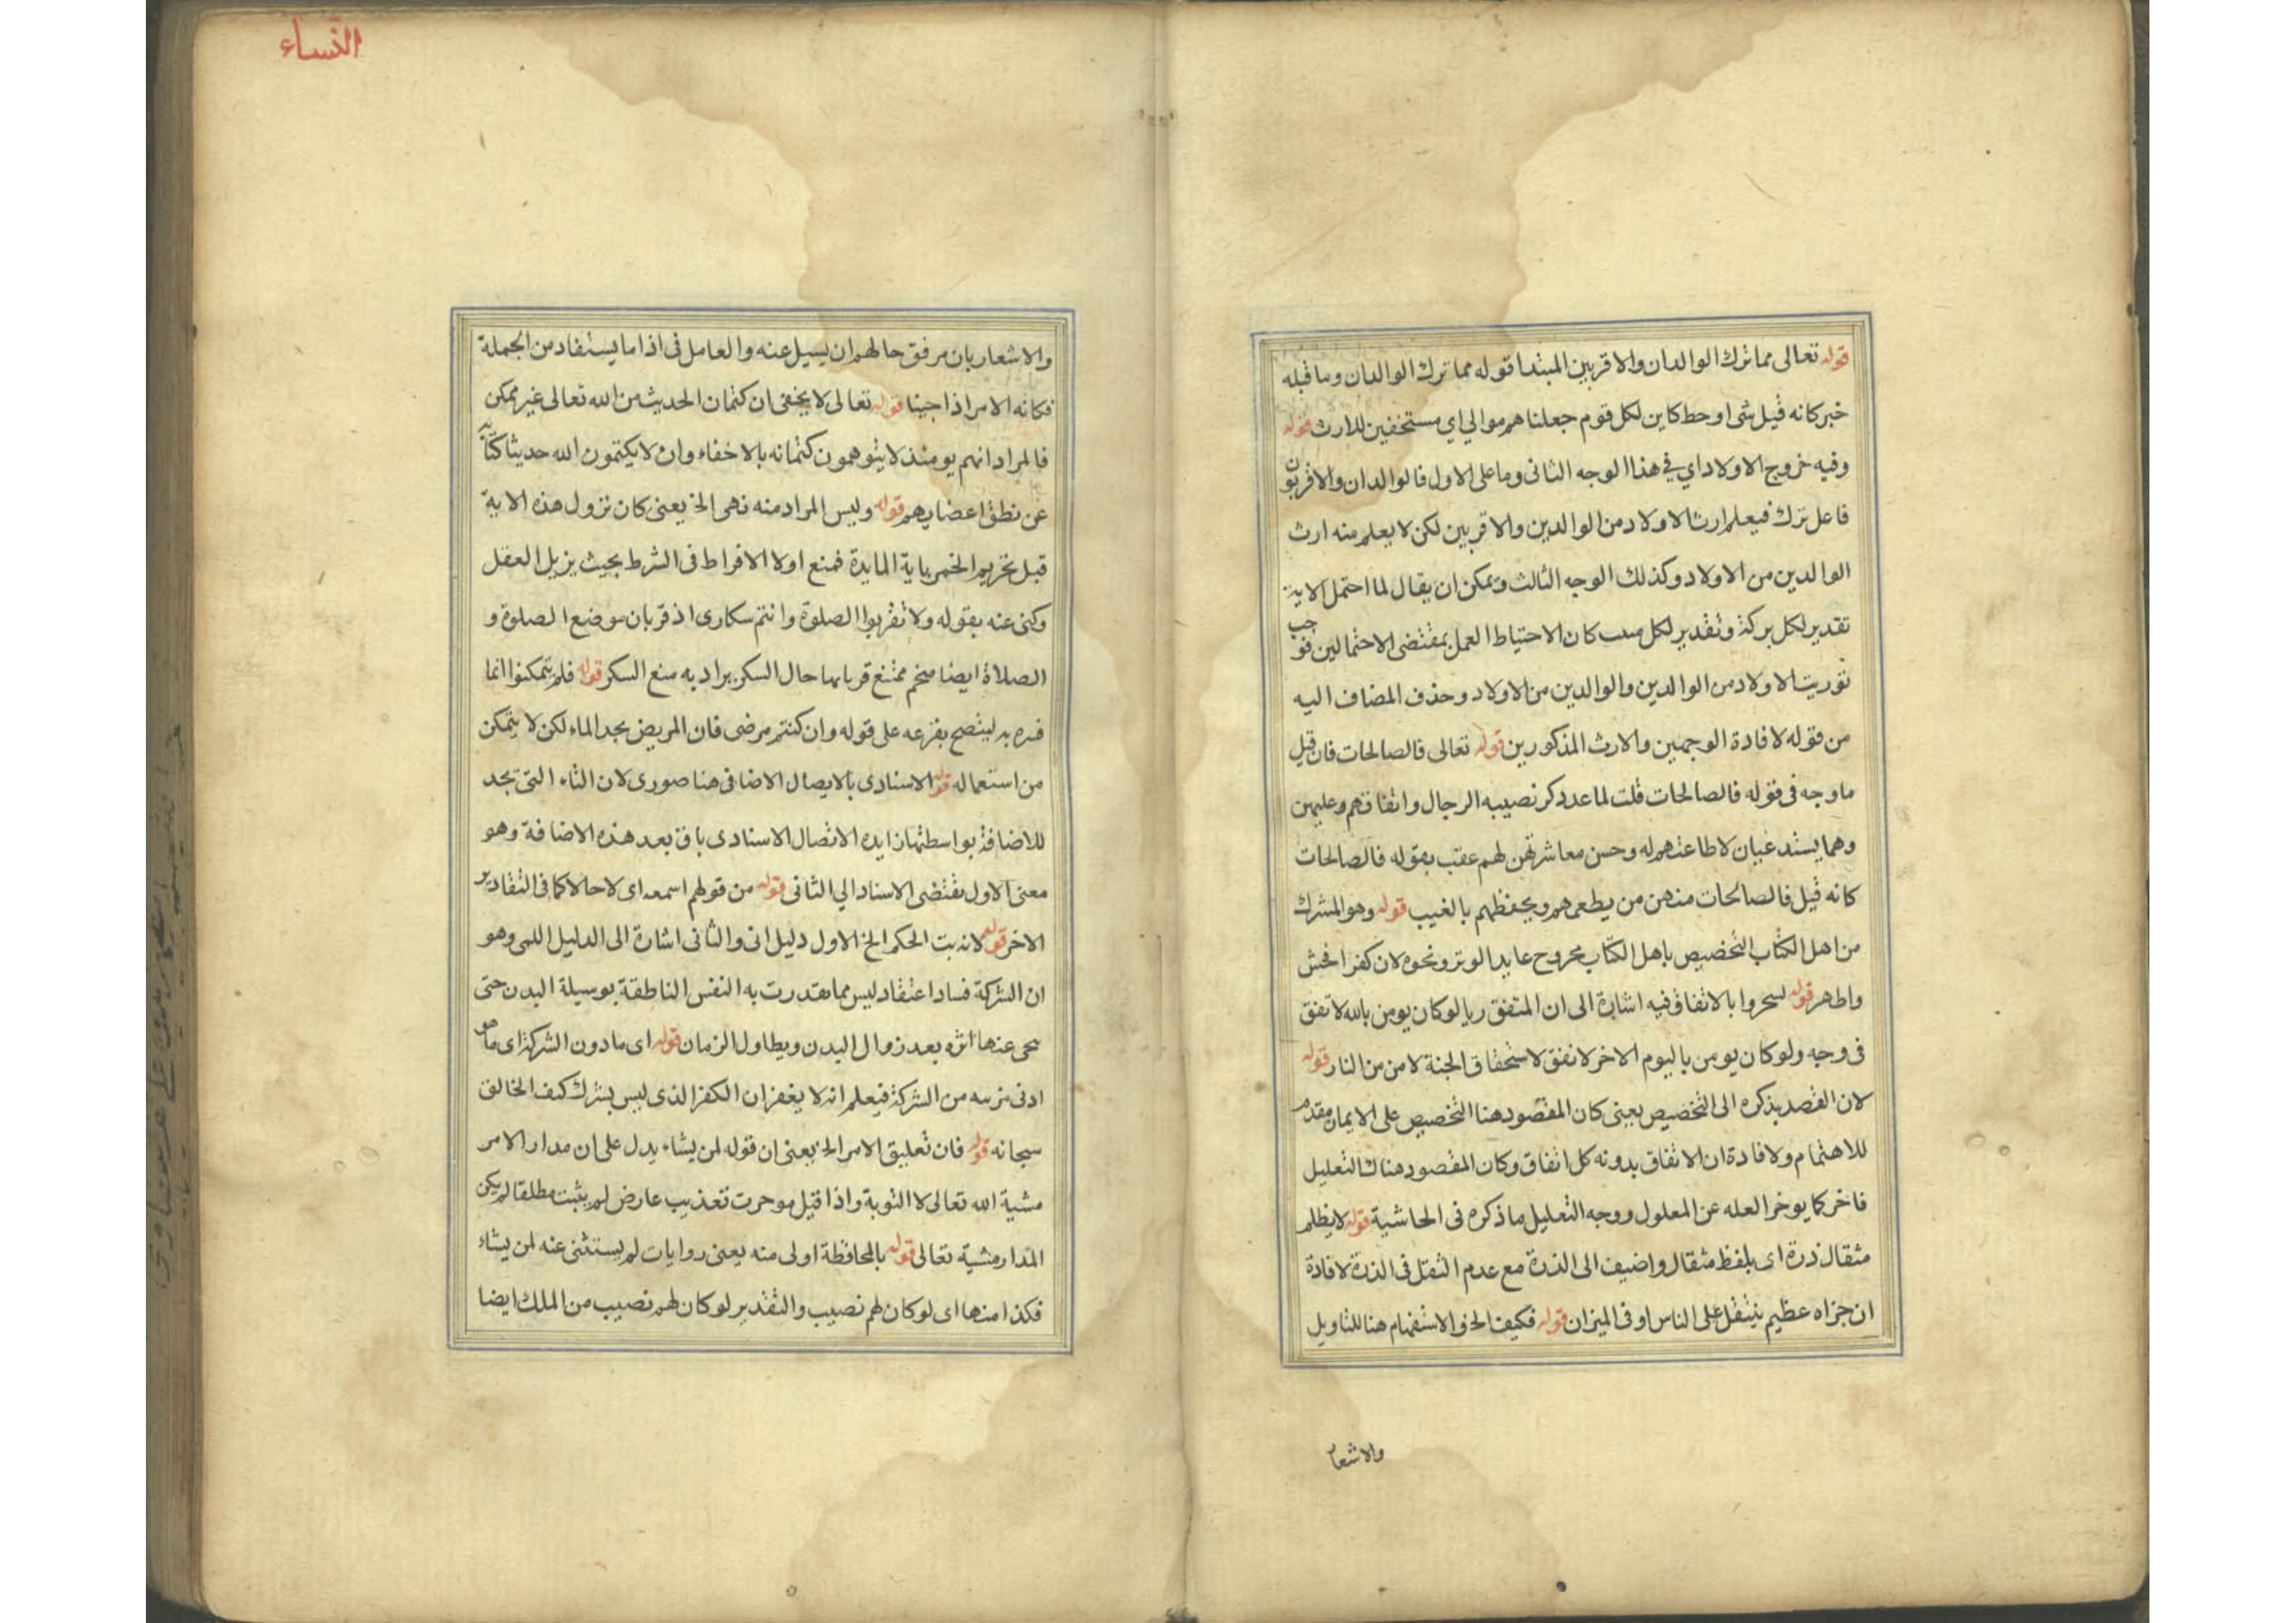 قوله تعالى مما ترك الوالدان والاقربين المبتدا قوله مما ترك الوالدان وما قبله
خبر كانه قيل شى اوحط كاين لكل قوم جعلنا هم موالي اي مستحفين للارث قوله
وفيه خروج الاولاد اي في هذا الوجه الثانى وما على الاول فالوالدان والاقربون
فاعل ترك فيعلم ارث الاولاد من الوالدين والاقربين لكن لا يعلم منه ارث
الوالدين من الاولاد وكذلك الوجه الثالث ويمكن ان يقال لما احتمل الاية
تقدير لكل بركة وتقدير لكل كان الاحتياط العمل بمقتضى الاحتمالين فوجب
توريث الاولاد من الوالدين والوالدين من الاولاد وحذف المضاف اليه
من قوله لافادة الوجهين والارث المذكورين قوله تعالى فالصالحات فان قيل
ما وجه فى قوله فالصالحات قلت لما عدد كر نصيبه الرجال واتفاقهم وعليهن
وهما يستدعيان لاطاعتهم له وحسن معاشرتهن لهم عقب بقوله فالصالحات
كانه قيل فالصالحات منهن من يطعمهم ويحفظهم بالغيب قوله وهو المشرك
من اهل الكتاب التخصيص باهل الكتاب مخروح عابد الوتر ونحوه لان كفرا فحش
واطهر قوله لسحروا بالاتفاق فيه اشارة الى ان المتفق ريا لو كان يومن بالله لا تفق
فى وجه ولو كان يومن باليوم الاخر لا نفق لاستحقاق الجنة لا من من النار قوله
لان القصد بذكره الى التخصيص يعنى كان المقصود هنا التخصيص على الايمان مقدم
للاهتمام ولافادة ان الاتفاق بدونه كل اتفاق وكان المقصود هناك التعليل
فاخر كما يوخر العله عن المعلول ووجه التعليل ما ذكره فى الحاشية قوله لا يظلم
مثقال ذرة اى بلفظ مثقال واضيف الى الذرة مع عدم الثقل فى الذرة لافادة
ان جزاه عظيم يثقل على الناس او فى الميزان قوله فكيف الخ والاستفهام هنا للتاويل
والاشعا
النساء
والاشعار بان مرفق حالهم ان يسيل عنه والعامل فى اذا ما يستفاد من الجملة
فكانه الامر اذا جينا قوله تعالى لا يخفى ان كتمان الحديث من الله تعالى غير ممكن
فالمراد انهم يومئذ لا يتوهمون كتمانه بالاخفاء وان لا يكتمون الله حديثا كناية
عن نطق اعضايهم قوله وليس المراد منه نهى الخ يعنى كان نزول هذه الاية
قبل تحريم الخمر باية المايدة فمنع اولا الافراط فى الشرط بحيث يزيل العقل
وكنى عنه بقوله ولا تقربوا الصلوة وانتم سكارى اذ قربان موضع الصلوة و
الصلاة ايضا ممتنع قربانها حال السكر يراد به منع السكر قوله فلم يتمكنوا انما
به ليتصح بفزعه على قوله وان كنتم مرضى فان المريض يجد الماء لكن لا يتمكن
من استعماله قوله الاسنادى بالايصال الاضافى هنا صورى لان التاء التى تجد
للاضافة بواسطتها زايده الاتصال الاسنادى باق بعد هذه الاضافة وهو
معنى الاول يقتضى الاسناد الي الثانى قوله من قولهم اسمعه اى لاحالا كما فى التقادير
الاخر قوله لانه بت الحكم الخ الاول دليل انى والثانى اشارة الى الدليل اللمى وهو
ان الشركة فساد اعتقاد ليس مما تقدرت به النفس الناطقة بوسيلة البدن حتى
يحى عنها اثره بعد زوال البدن ويطاول الزمان قوله اى ما دون الشركة اى ما هو
ادنى من الشركة فيعلم انه لا يغفر ان الكفر الذى ليس بشرك كنف الخالق
سبحانه قوله فان تعليق الامر الخ يعنى ان قوله لمن يشاء يدل على ان مدار الامر
مشية الله تعالى لا التوبة واذا قيل موحرت تعذيب عارض لم يثبت مطلقا لم يكن
المدار مشية تعالى قوله بالمحافظة اولى منه يعنى روايات لم يستثنى عنه لمن يشاء
فكذا منها اى لو كان لهم نصيب والتقدير لو كان لهم نصيب من الملك ايضا